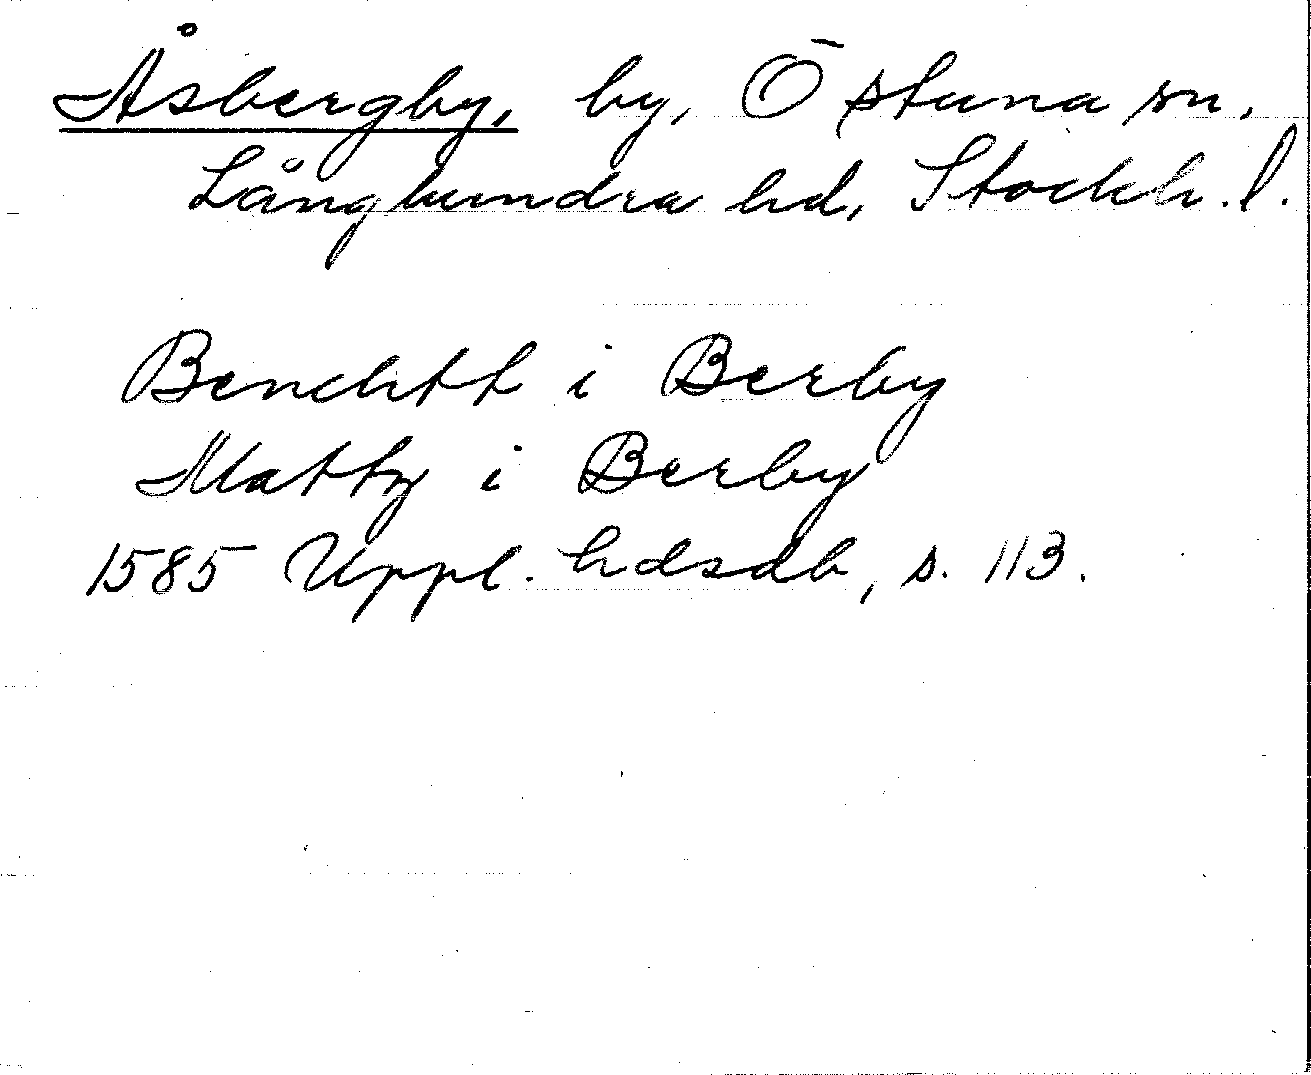 Åsbergby, by, Östuna sn,
Långhundra hd, Stockh. l.
Bendhtt i Berby
Mattz i Berby
1585 Uppl. hdsdb, s. 113.